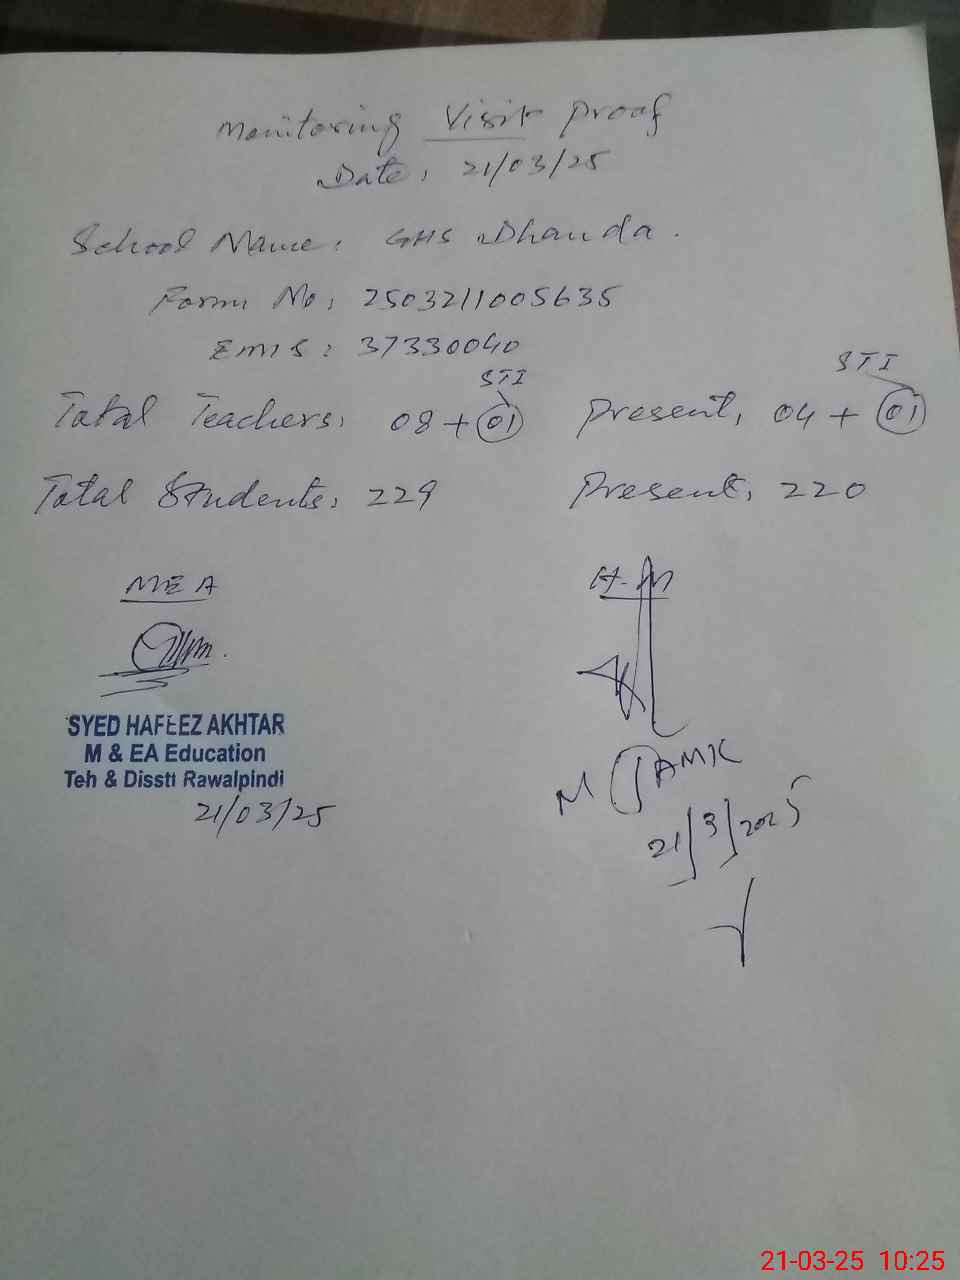 Monitoring Visit Proof
Date: 21/03/25
School Name: GHS Dhanda.
Form No: 2503211005635
EMIS: 37330040
STI STI
Total Teachers: 08 + 01 Present: 04 + 01
Total Students: 229 Present: 220
MEA H-M
SYED HAFEEZ AKHTAR
M & EA Education
Teh & Disstt Rawalpindi
21/03/25
21/3/2025
21-03-25 10:25